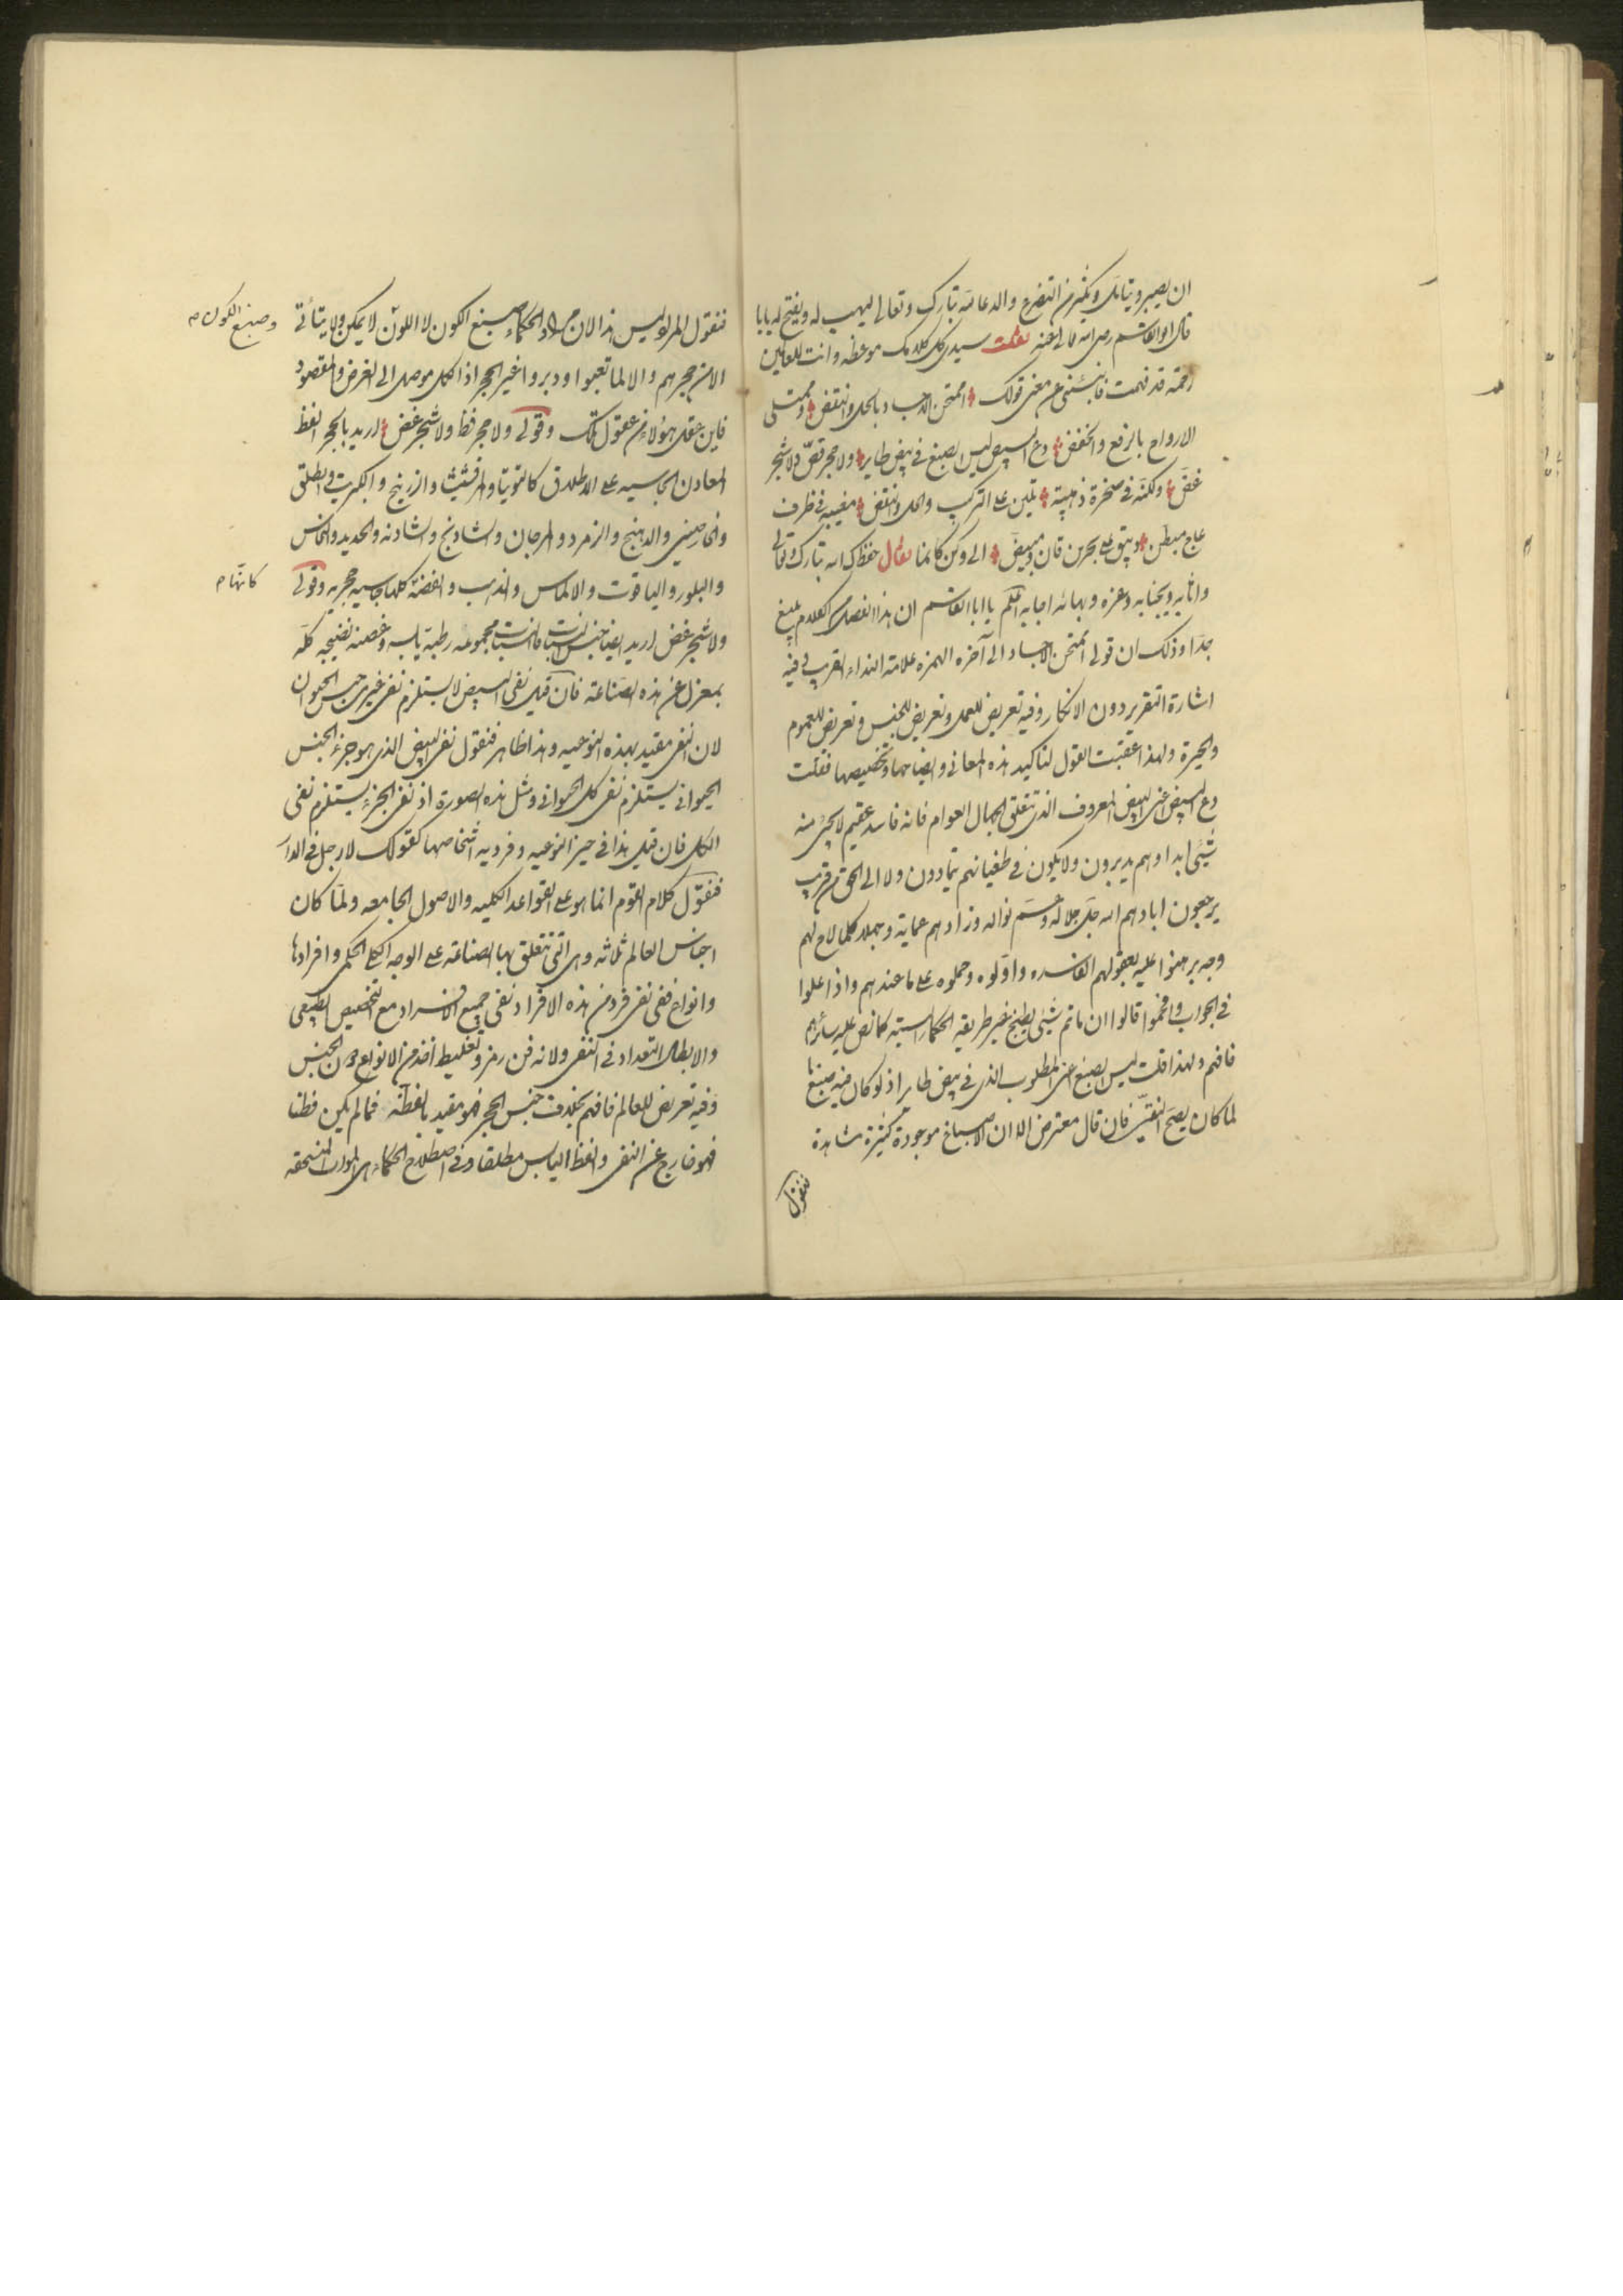 ان يصبر ويتامل ويكثر من التضرع والدعا لله تبارك وتعالى ليهب له ويفتح له بابا
قال ابو القاسم رضى الله تعالى عنه فقلت سيدى كل كلامك موعظه وانت للعالمين
رحمة قد فهمت فانبئنى عن معنى قولك اممتحن الاجساد بالحل والنقض وممتلى
الارواح بالرفع والخفض دع البيض ليس الصبغ فى بيض طاير ولا حجر فظ ولا شجر
غض ولكنه فى صخرة ذهبية تلين على التركيب والحل والنقض مغيبه فى ظرف
عاج مبطن على بحرين قان ومبيض الى وكن كانما فقال حفظك الله تبارك وتعالى
واثابه وبجنابه وعزه وبهائه اجابه اعلم يا ابا القاسم ان هذا الفصل من الكلام بليغ
جدا وذلك ان قولى اممتحن الاجساد الى آخره الهمزه علامة النداء القريب وفيه
اشارة التقرير دون الانكار وفيه تعريض للعمل وتعريض للجنس وتعريض للعموم
والحيرة ولهذا عقبت القول لتاكيد هذه المعانى وايضاحها وتخصيصها فقلت
دع البيض اعنى البيض المعروف الذى تتعلق الجهال العوام فانه فاسد عقيم لا يجئ منه
شيئ ابدا وهم يدبرون ولا يكون فى طغيانهم يتمادون ولا الى الحق من قريب
يرجعون ابادهم الله جل جلاله وزادهم عماية وجهلا كلما لاح لهم
وجه برهنوا عليه بعقولهم الفاسده واولوه وحملوه على ما عندهم واذا غلبوا
فى الجواب وافحموا قالوا ان ماتم شيئ يطبخ غير طريقه الحكماء البته كما نص عليه سائرهم
فافهم ولهذا قلت ليس الصبغ اعنى المطلوب الذى فى بيض طاير اذ لو كان فيه صبغا
لما كان يصح النفى فان قال معترض الا ان الاصباغ موجودة كثيرة مشاهدة
فنقول
فنقول المراد ليس هذا لان مراد الحكماء صبغ الكون لا اللون لا يمكن ولا يتأتى
وصبغ الكون م
الا من حجرهم والا لما تعبوا ودبروا غير الحجر اذا الكل موصل الى الغرض والمقصود
فاين عقل هؤلاء من عقول تلك وقولى ولا حجر فظ ولا شجر غض اريد بالحجر الفظ
المعادن الجاسيه على الاطلاق كالتوتيا والمرقشيثا والزرنيخ والكبريت والطلق
والخارصينى والدهنج والزمرد والمرجان والشادنج والشادنه والحديد والنحاس
والبلور والياقوت والالماس والذهب والفضة كلها جاسيه حجريه وقولى
كانها م
ولا شجر غض اريد ايضا جنس النبات فالنبات مجموعه رطبة يابسه وغصنه نضيجه كله
بمعزل عن هذه الصناعة فان قيل نفى البيض لا يستلزم نفى غيره من جنس الحيوان
لان النفى مقيد بهذه النوعيه وهذا ظاهر فنقول نفى البيض الذى هو جزء الجنس
الحيوانى يستلزم نفى كل الحيوانى ومثل هذه الصورة اذ نفى الجزء يستلزم نفى
الكل فان قيل هذا فى حيز النوعيه وفرديه اشخاصها كقولك لا رجل فى الدار
فنقول كلام القوم انما هو على القواعد الكليه والاصول الجامعه ولما كان
اجناس العالم ثلاثه وهى التى تتعلق بها الصناعة على الوجه الكلى الحكمى وافرادها
وانواع ففى نفى فرد من هذه الافراد نفى جميع الافراد مع التخصيص الطبيعى
والابطال التعداد فى النفى ولانه فن رمز وتغليط اخذ من الانواع دون الجنس
وفيه تعريض للعالم فافهم بخلاف جنس الحجر فهو مقيد بالفظة فما لم يكن فظا
فهو خارج عن النفى والفظ اليابس مطلقا وفى اصطلاح الحكماء هى المواد المنسحقه